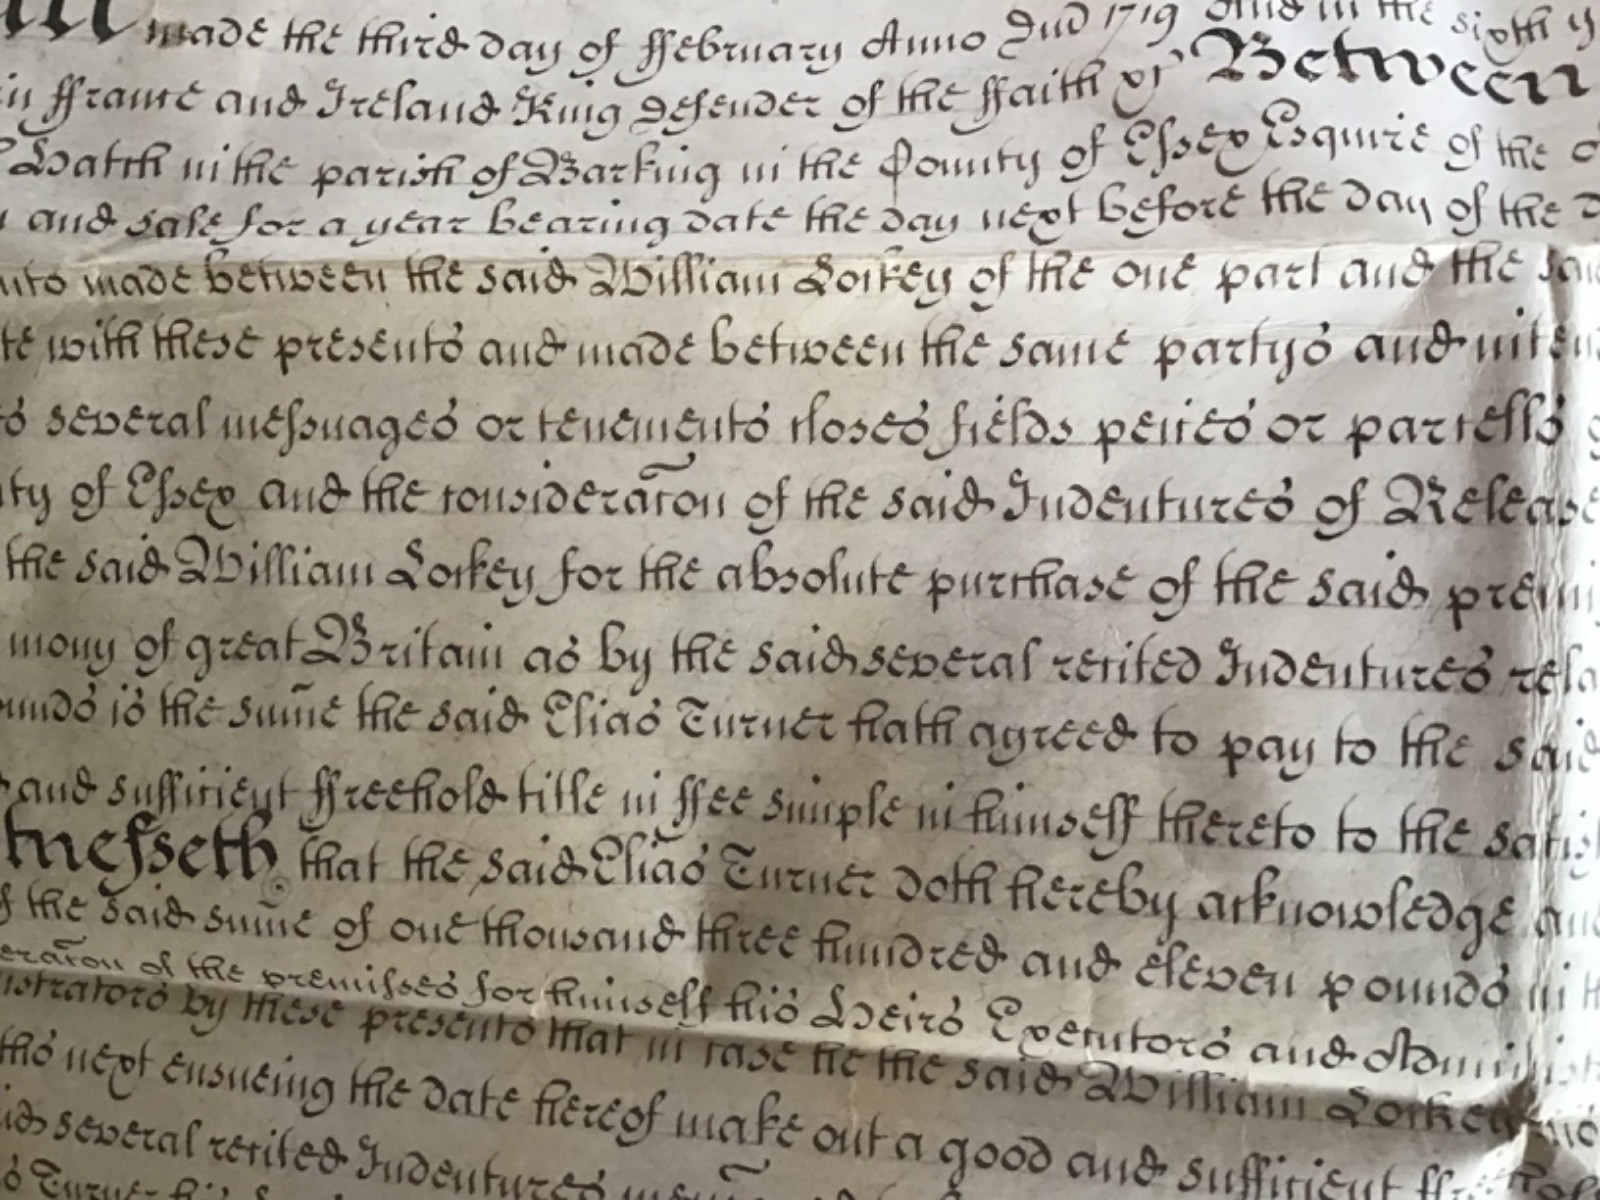 made the third day of ffebruary Anno Dnd 1719 And in the sixth y
in ffrance and Ireland King Defender of the ffaith &c Between
Hatch in the parish of Barking in the County of Essex Esquire of the o
and sale for a year bearing date the day next before the day of the D
nto made between the said William Lockey of the one part and the sai
te with these presents and made between the same partys and inten
s several messuages or tenements closes fields peices or parcells g
ty of Essex and the consideracon of the said Indentures of Release
the said William Lockey for the absolute purchase of the said premi
mony of great Britain as by the said several recited Indentures rela
unds is the sume the said Elias Turner hath agreed to pay to the said
and sufficient ffreehold title in ffee simple in himself thereto to the satis
tnesseth that the said Elias Turner doth hereby acknowledge an
f the said sume of one thousand three hundred and eleven pounds in h
eracon of the premisses for himself his Heirs Executors and Administ
istrators by these presents that in case he the said William Lockey his
ths next ensueing the date hereof make out a good and sufficient ffreehol
id several recited Indentures
s Turner his